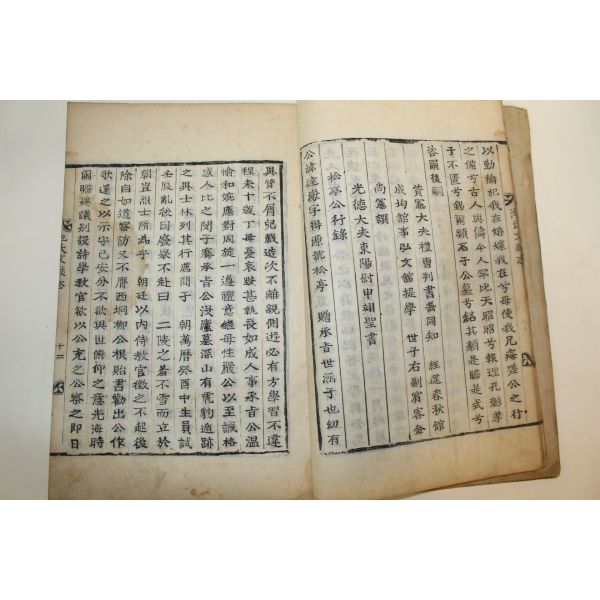 以勤檢杞我在婚嫁我在兮母使我兄瘞溪公之行
之備兮古人與儔今人罕比天昭昭兮報理孔彰孝
子不匱兮錫爾類石于公墓兮銘其顯是瞻是式兮
啓爾後嗣
資憲大夫禮曹判書兼同知 經筵春秋館
成均館事弘文館提學 世子右副賓客金
尚憲譔
光德大夫東陽尉申翊聖書
松亭公行錄
公諱達海字得源號松亭 贈承旨世涵子也幼有
異質不屑兒戲造次不離親側遊必有方學習不違
程未十歲丁母憂哀毀甚執喪如成人事承旨公溫
愉和婉應對周旋一遵禮意繼母性嚴公以至誠格
感人比之閔子騫承旨公沒廬墓深山有虎豹遁跡
之異士林列其行薦聞于 朝萬曆癸酉中生員試
壬辰亂後因廢擧不赴曰 二陵之
朝豈烈士所為乎 朝廷以內侍教官徵之不起後
除自如道察訪又不膺西坰柳公根貽書勸出公作
歌逢之以示守己安分不欲與世俯仰之意光海時
爾瞻違議別設詩學教官欲以公充之公察之即日
十二